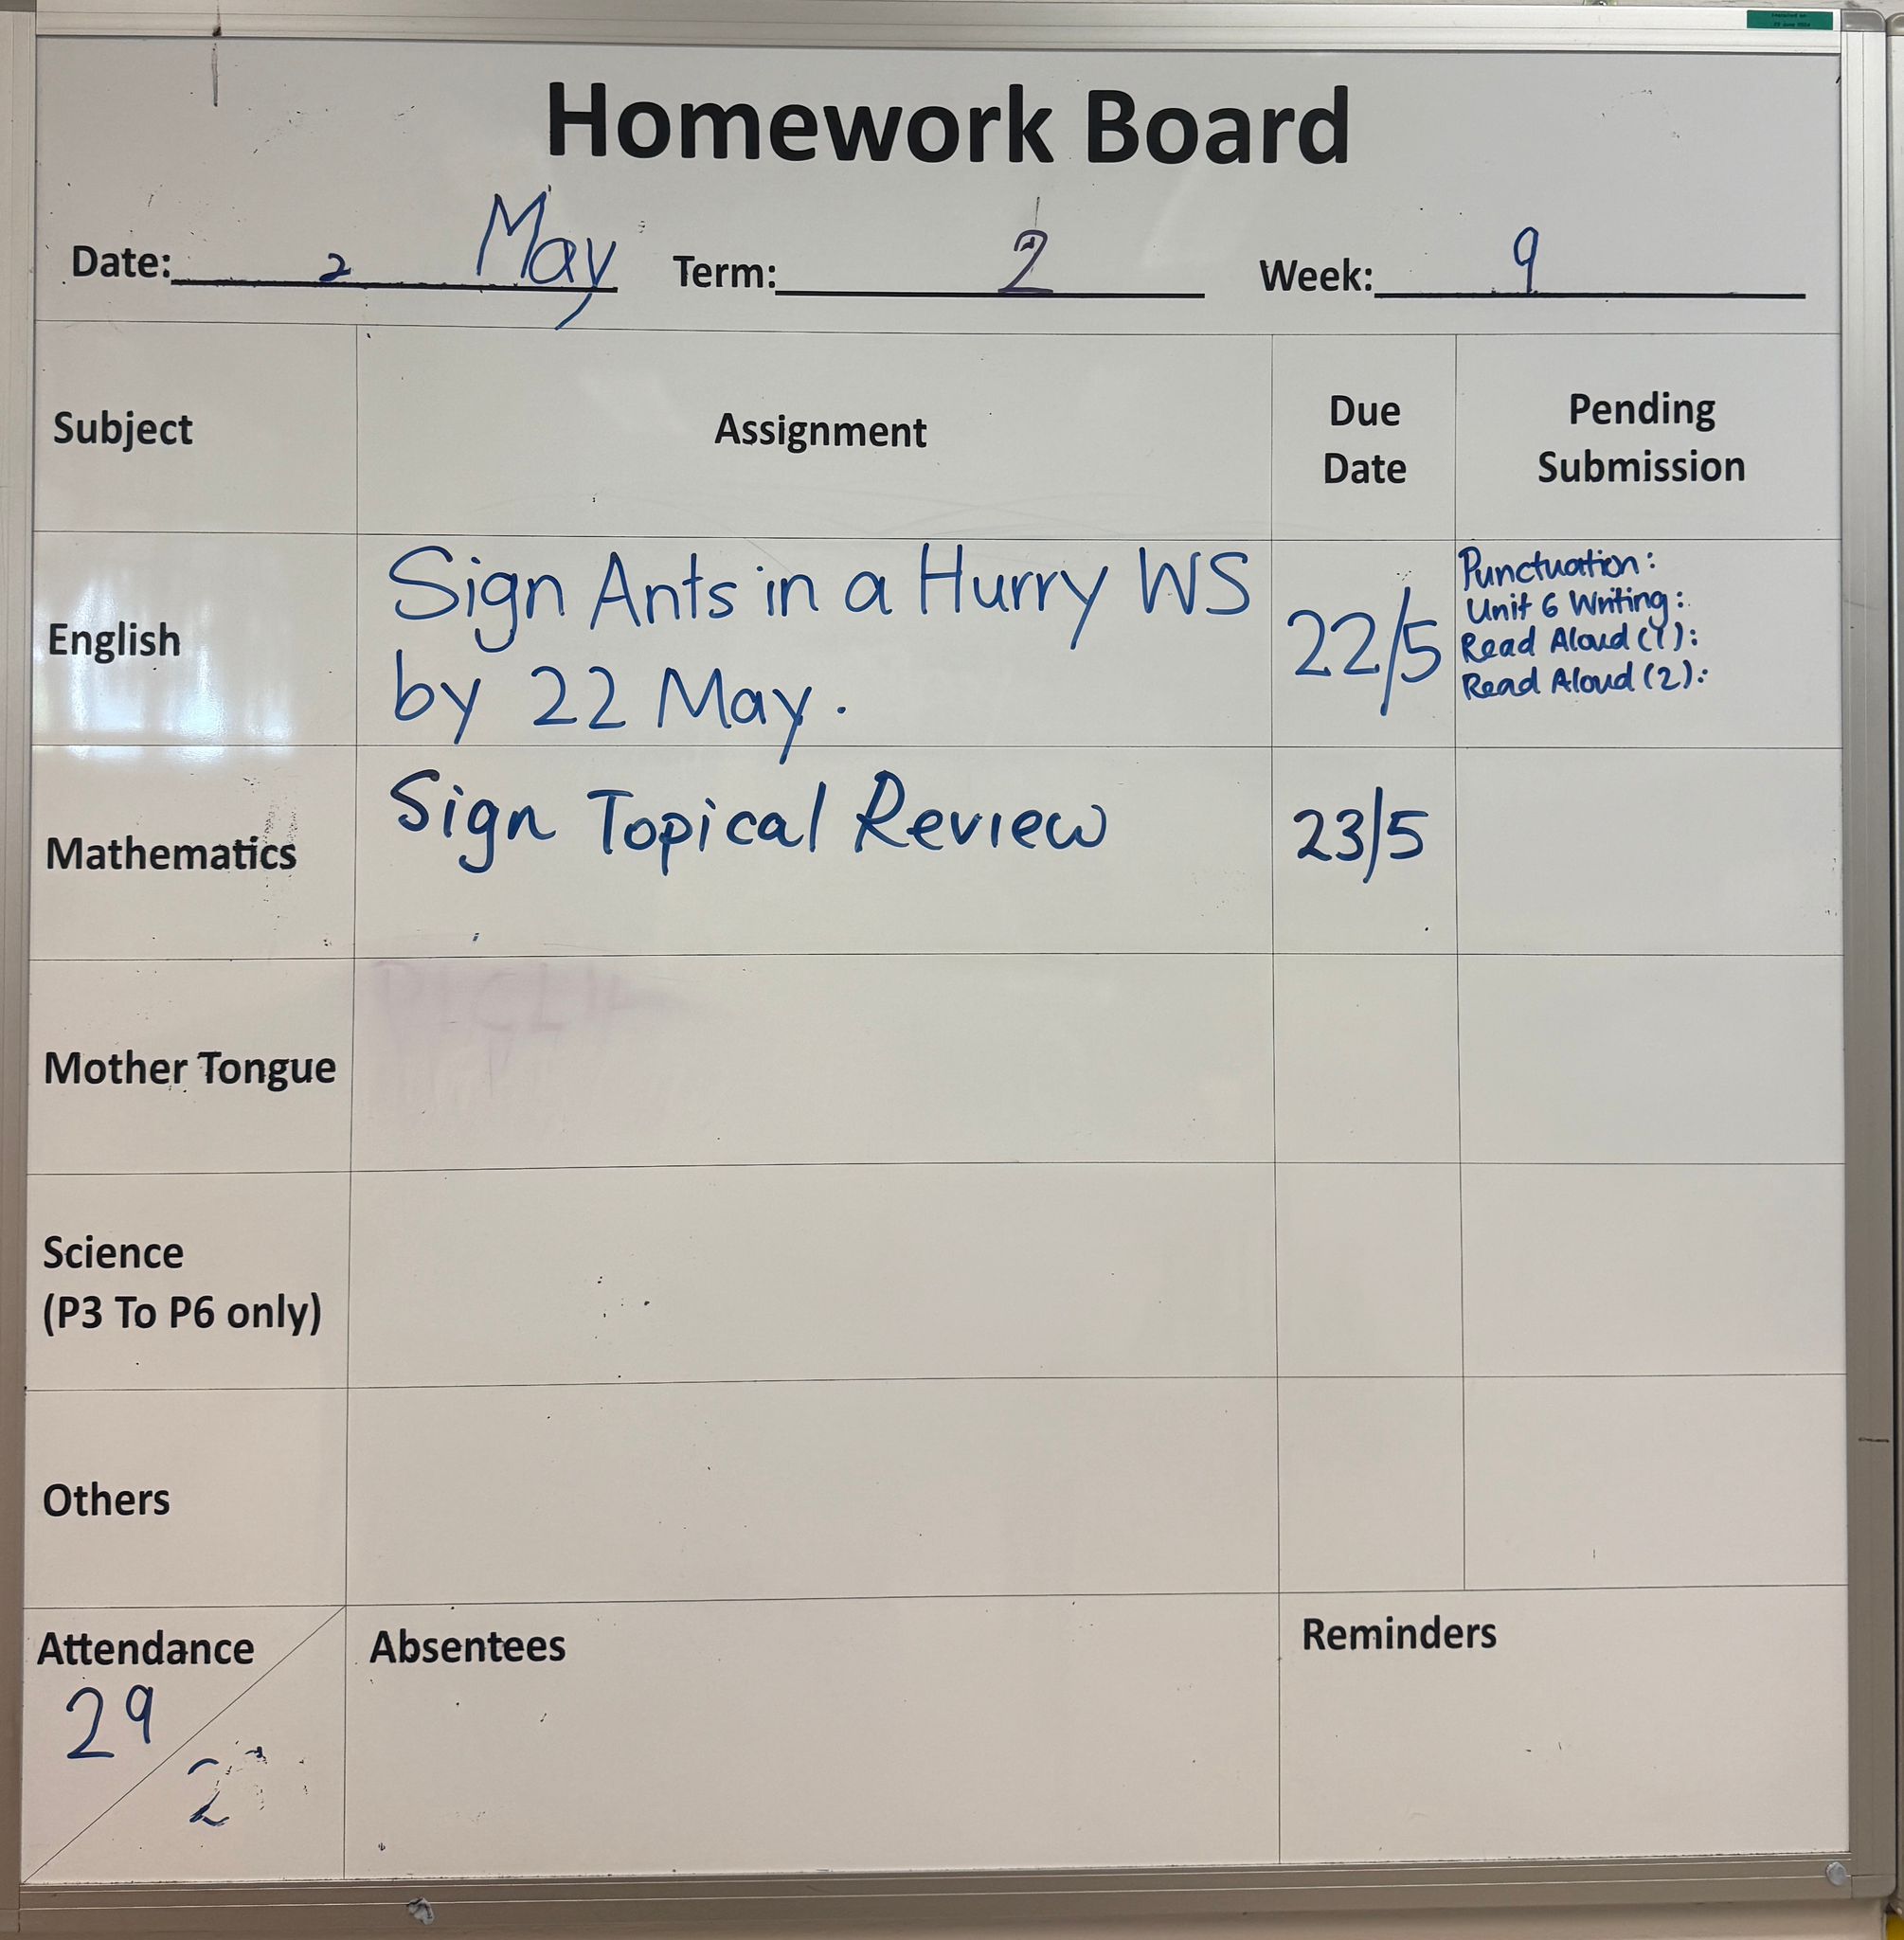 Homework Board
Date: 2 May Term: 2 Week: 9
Subject Assignment Due Date Pending Submission
English
Sign Ants in a Hurry WS
by 22 May.
22/5
Punctuation:
Unit 6 Writing:
Read Aloud (1):
Read Aloud (2):
Mathematics Sign Topical Review 23/5
Mother Tongue
Science
(P3 To P6 only)
Others
Attendance Absentees Reminders
29
2